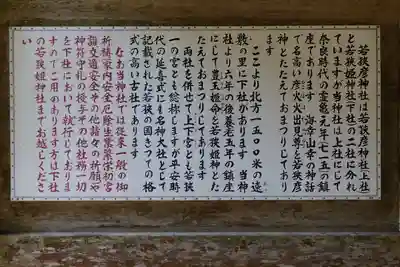 若狭彦神社は若狭彦神社上社
と若狭姫神社下社の二社に分れ
ていますが当神社は上社にして
奈良時代の霊亀元年(七一五)の鎮
座であります 海幸山幸の神話
で名高い彦火火出見尊を若狭彦
神とたたえておまつりしてあり
ます
ここより北方一五〇〇米の遠
敷の里に下社があります 当神
社より六年の後養老五年の鎮座
にして豊玉姫命を若狭姫神とた
たえておまつりしてあります
両社を併せて上下宮とも若狭
一の宮とも総称しますが平安時
代の延喜式にも名神大社として
記載された若狭の国きつての格
式の高い古社であります
なお当神社では従来一般の御
祈祷家内安全厄除生業繁栄初宮
詣交通安全その他諸々の祈願や
神符守札の授与その他社務一切
を下社において執行しておりま
すのでご用のあります方は下社
の若狭姫神社までお越しくださ
い